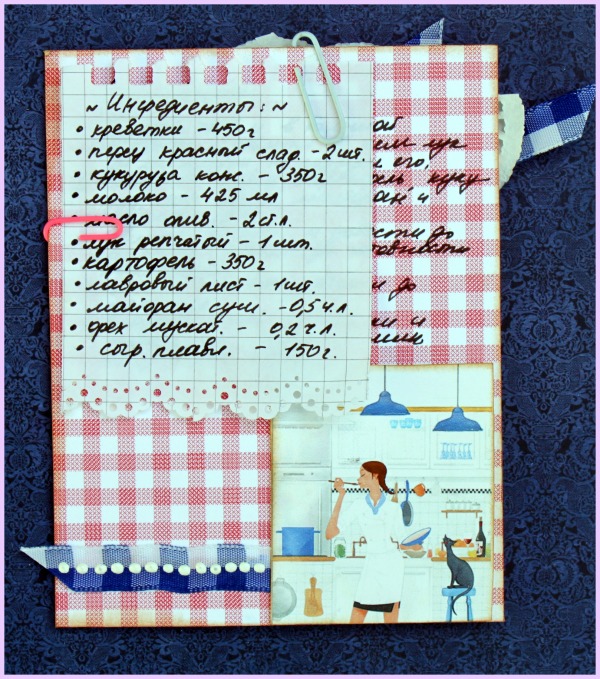 ~ Ингредиенты: ~
• креветки - 450г
• перец красный слад. - 2шт.
• кукуруза конс. - 350г
• молоко - 425 мл
• масло олив. - 2ст.л.
• лук репчатый - 1 шт.
• картофель - 350г
• лавровый лист - 1шт.
• майоран суш. - 0,5 ч.л.
• орех мускат. - 0,2 ч.л.
• сыр. плавл. - 150г.
лук
и его
куку
и
до
и до
и и